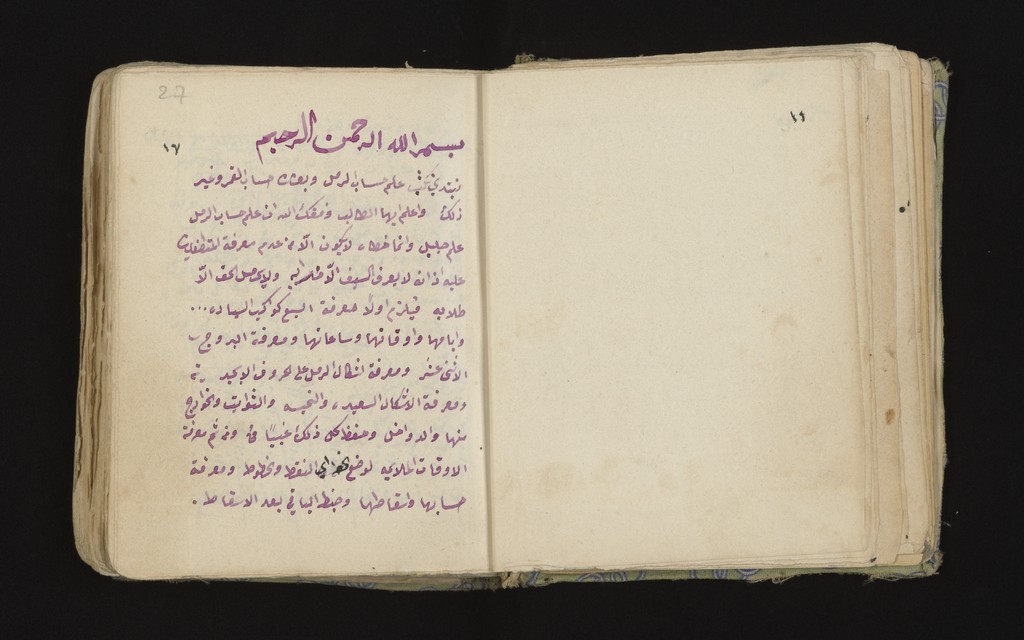 ١٤
27
١٧
بسم الله الرحمن الرحيم
نبتدي نكتب علم حساب الرمل وبعده حساب القمر وغير
ذلك واعلم ايها الطالب وفقك الله ان علم حساب الرمل
علم جليل وانما خطاه لا يكون الا من عدم معرفة
عليه اذ ان لا يعرف السيف الا ضرابه ولا يحمل الحق الا
طلابه فيلزم اولاً معرفة السبع كواكب السياره ...
وايامها واوقاتها وساعاتها ومعرفة البروج
الاثنى عشر ومعرفة اشكال الرمل على حروف الابجديه
ومعرفة الاشكال السعيده والنحسه والثوابت والخوارج
منها والدواخل وحفظ كل ذلك غيبيًا ومن ثم معرفة
الاوقات الملايمه لوضع النقط وخطوط ومعرفة
حسابها واسقاطها وضبط الباقي بعد الاسقاط .